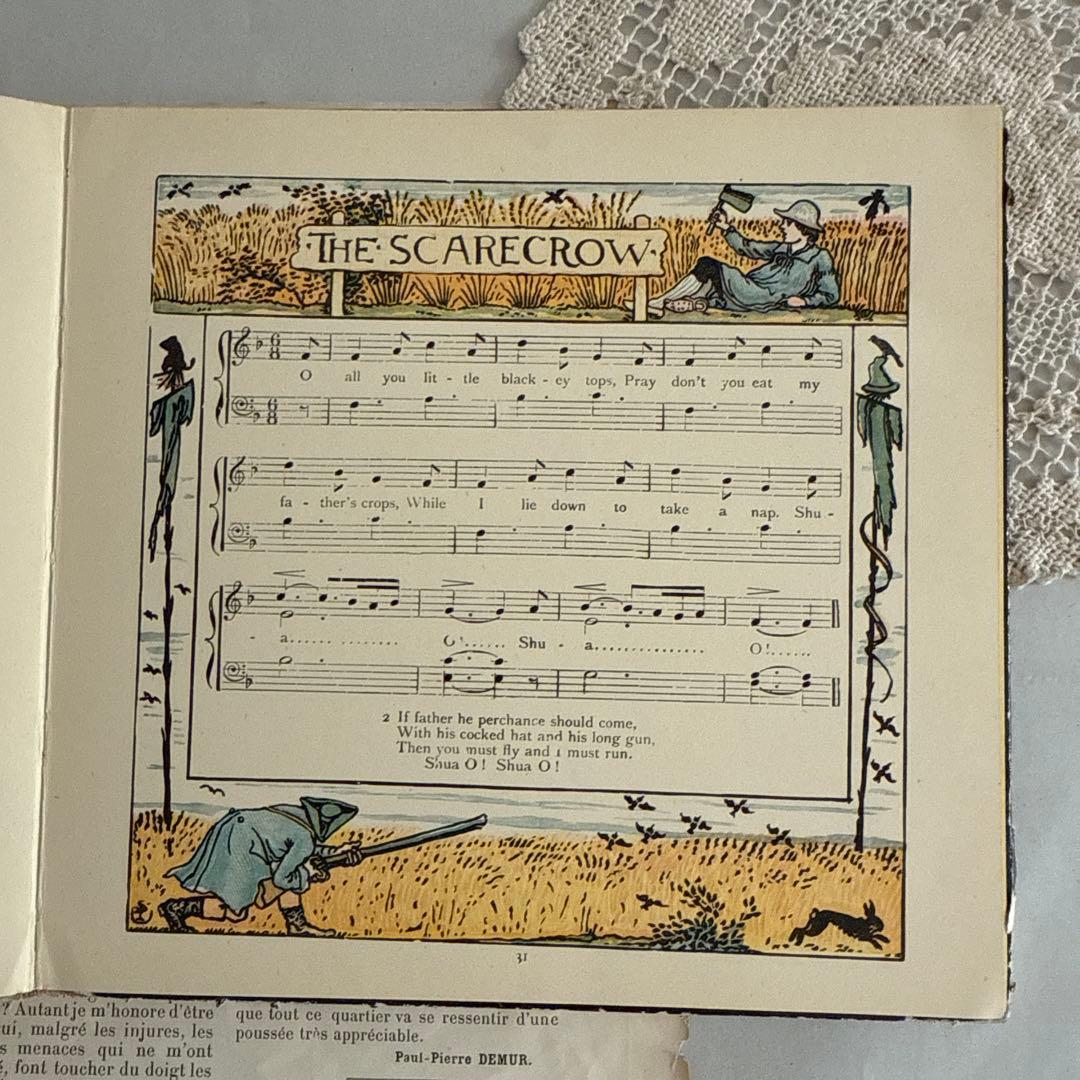 ·THE·SCARECROW·
O all you lit - tle black - ey tops, Pray don't you eat my
fa - ther's crops, While I lie down to take a nap. Shu -
- a...... ......... O!...... Shu - a............... O!......
2 If father he perchance should come,
With his cocked hat and his long gun,
Then you must fly and I must run.
Shua O! Shua O!
31
? Autant je m'honore d'être
ui, malgré les injures, les
s menaces qui ne m'ont
é, font toucher du doigt les
que tout ce quartier va se ressentir d'une
poussée très appréciable.
Paul-Pierre DEMUR.